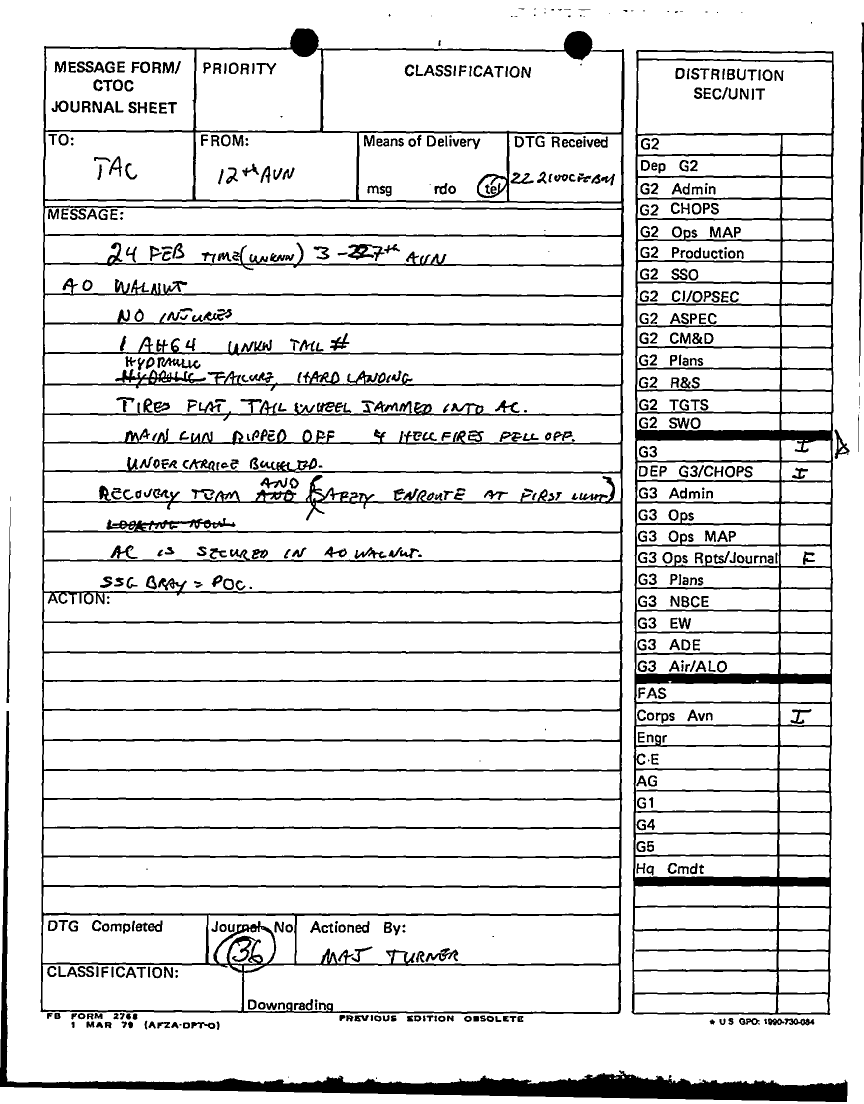 MESSAGE FORM/
CTOC
JOURNAL SHEET
PRIORITY
CLASSIFICATION
TO:
TAC
FROM:
12th AVN
Means of Delivery
msg rdo tel
DTG Received
MESSAGE:
24 FEB TIME (UNKNN) 3-227th AVN
AO WALNUT
NO INJURIES
1 AH64 UNKN TAIL #
HYDRAULIC
HYDROLIC FAILURE, HARD LANDING
TIRES FLAT, TAIL WHEEL JAMMED INTO AC.
MAIN GUN RIPPED OFF 4 HELLFIRES FELL OFF.
UNDERCARRIGE BUCKLED.
AND
RECOVERY TEAM AND (SAFETY ENROUTE AT FIRST LIGHT)
LOOKING NOW
AC IS SECURED IN AO WALNUT.
SSG BRAY = POC.
ACTION:
DTG Completed
Journal No
36
Actioned By:
MAJ TURNER
CLASSIFICATION:
Downgrading
FB FORM 2768
1 MAR 79 (AFZA-DPT-O)
PREVIOUS EDITION OBSOLETE
DISTRIBUTION
SEC/UNIT
G2
Dep G2
G2 Admin
G2 CHOPS
G2 Ops MAP
G2 Production
G2 SSO
G2 CI/OPSEC
G2 ASPEC
G2 CM&D
G2 Plans
G2 R&S
G2 TGTS
G2 SWO
G3 I
DEP G3/CHOPS I
G3 Admin
G3 Ops
G3 Ops MAP
G3 Ops Rpts/Journal F
G3 Plans
G3 NBCE
G3 EW
G3 ADE
G3 Air/ALO
FAS
Corps Avn I
Engr
C-E
AG
G1
G4
G5
Hq Cmdt
★ U S GPO: 1990-730-084